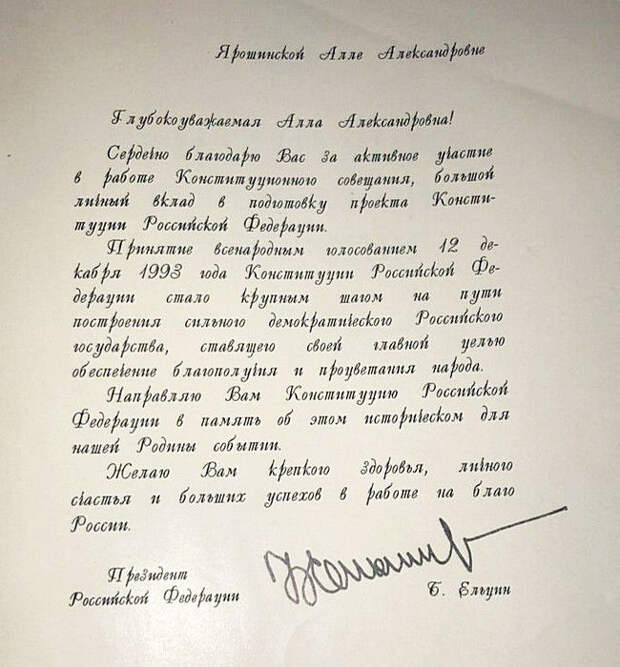 Ярошинской Алле Александровне
Глубокоуважаемая Алла Александровна!
Сердечно благодарю Вас за активное участие
в работе Конституционного совещания, большой
личный вклад в подготовку проекта Консти-
туции Российской Федерации.
Принятие всенародным голосованием 12 де-
кабря 1993 года Конституции Российской Фе-
дерации стало крупным шагом на пути
построения сильного демократического Российского
государства, ставящего своей главной целью
обеспечение благополучия и процветания народа.
Направляю Вам Конституцию Российской
Федерации в память об этом историческом для
нашей Родины событии.
Желаю Вам крепкого здоровья, личного
счастья и больших успехов в работе на благо
России.
Президент
Российской Федерации
Б. Ельцин